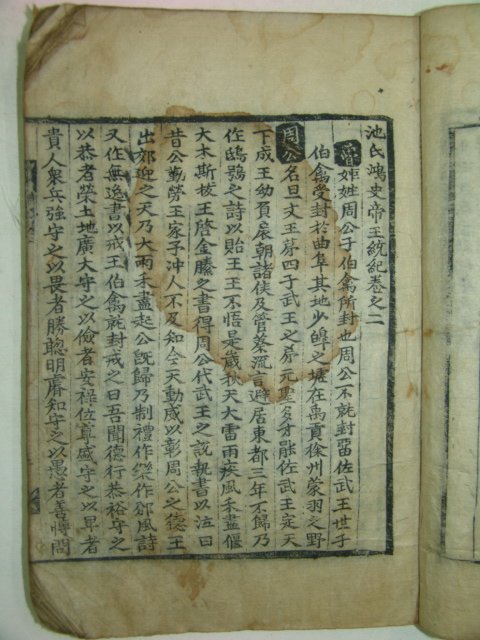 池氏鴻史帝王統紀卷之二
魯 姬姓周公子伯禽所封也周公不就封留佐武王世子
伯禽受封於曲阜其地少皥之墟在禹貢徐州蒙羽之野
周公 名旦文王第四子武王之弟元聖多才能佐武王定天
下成王幼負扆朝諸侯及管蔡流言避居東都三年不歸乃
作鴟鴞之詩以貽王王不悟是歲秋天大雷雨疾風禾盡偃
大木斯拔王啓金縢之書得周公代武王之說執書以泣曰
昔公勤勞王家予冲人不及知今天動威以彰周公之德王
出郊迎之天乃大雨禾盡起公旣歸乃制禮作樂作豳風詩
又作無逸書以戒王伯禽就封戒之曰吾聞德行恭裕守之
以恭者榮土地廣大守之以儉者安祿位尊盛守之以卑者
貴人衆兵強守之以畏者勝聰明睿知守之以愚者善博聞